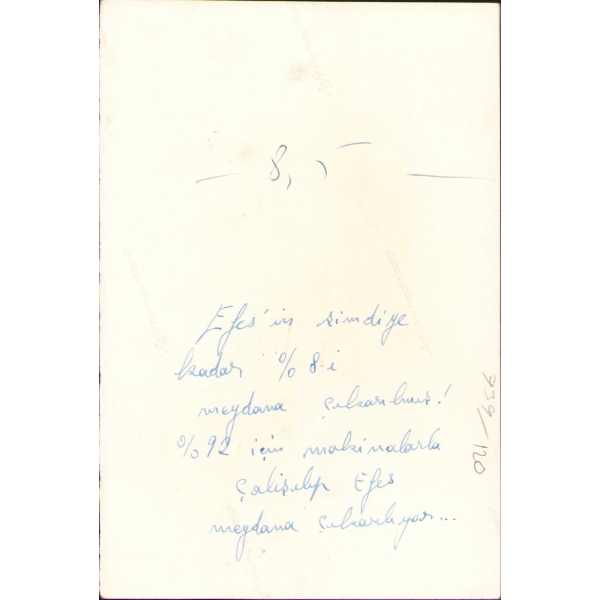 — 8,5 —
Efes'in simdiye
kadar %8 i
meydana çıkarılmış!
%92 için makinalarla
çalışılıp Efes
meydana çıkarılıyor...
939/120